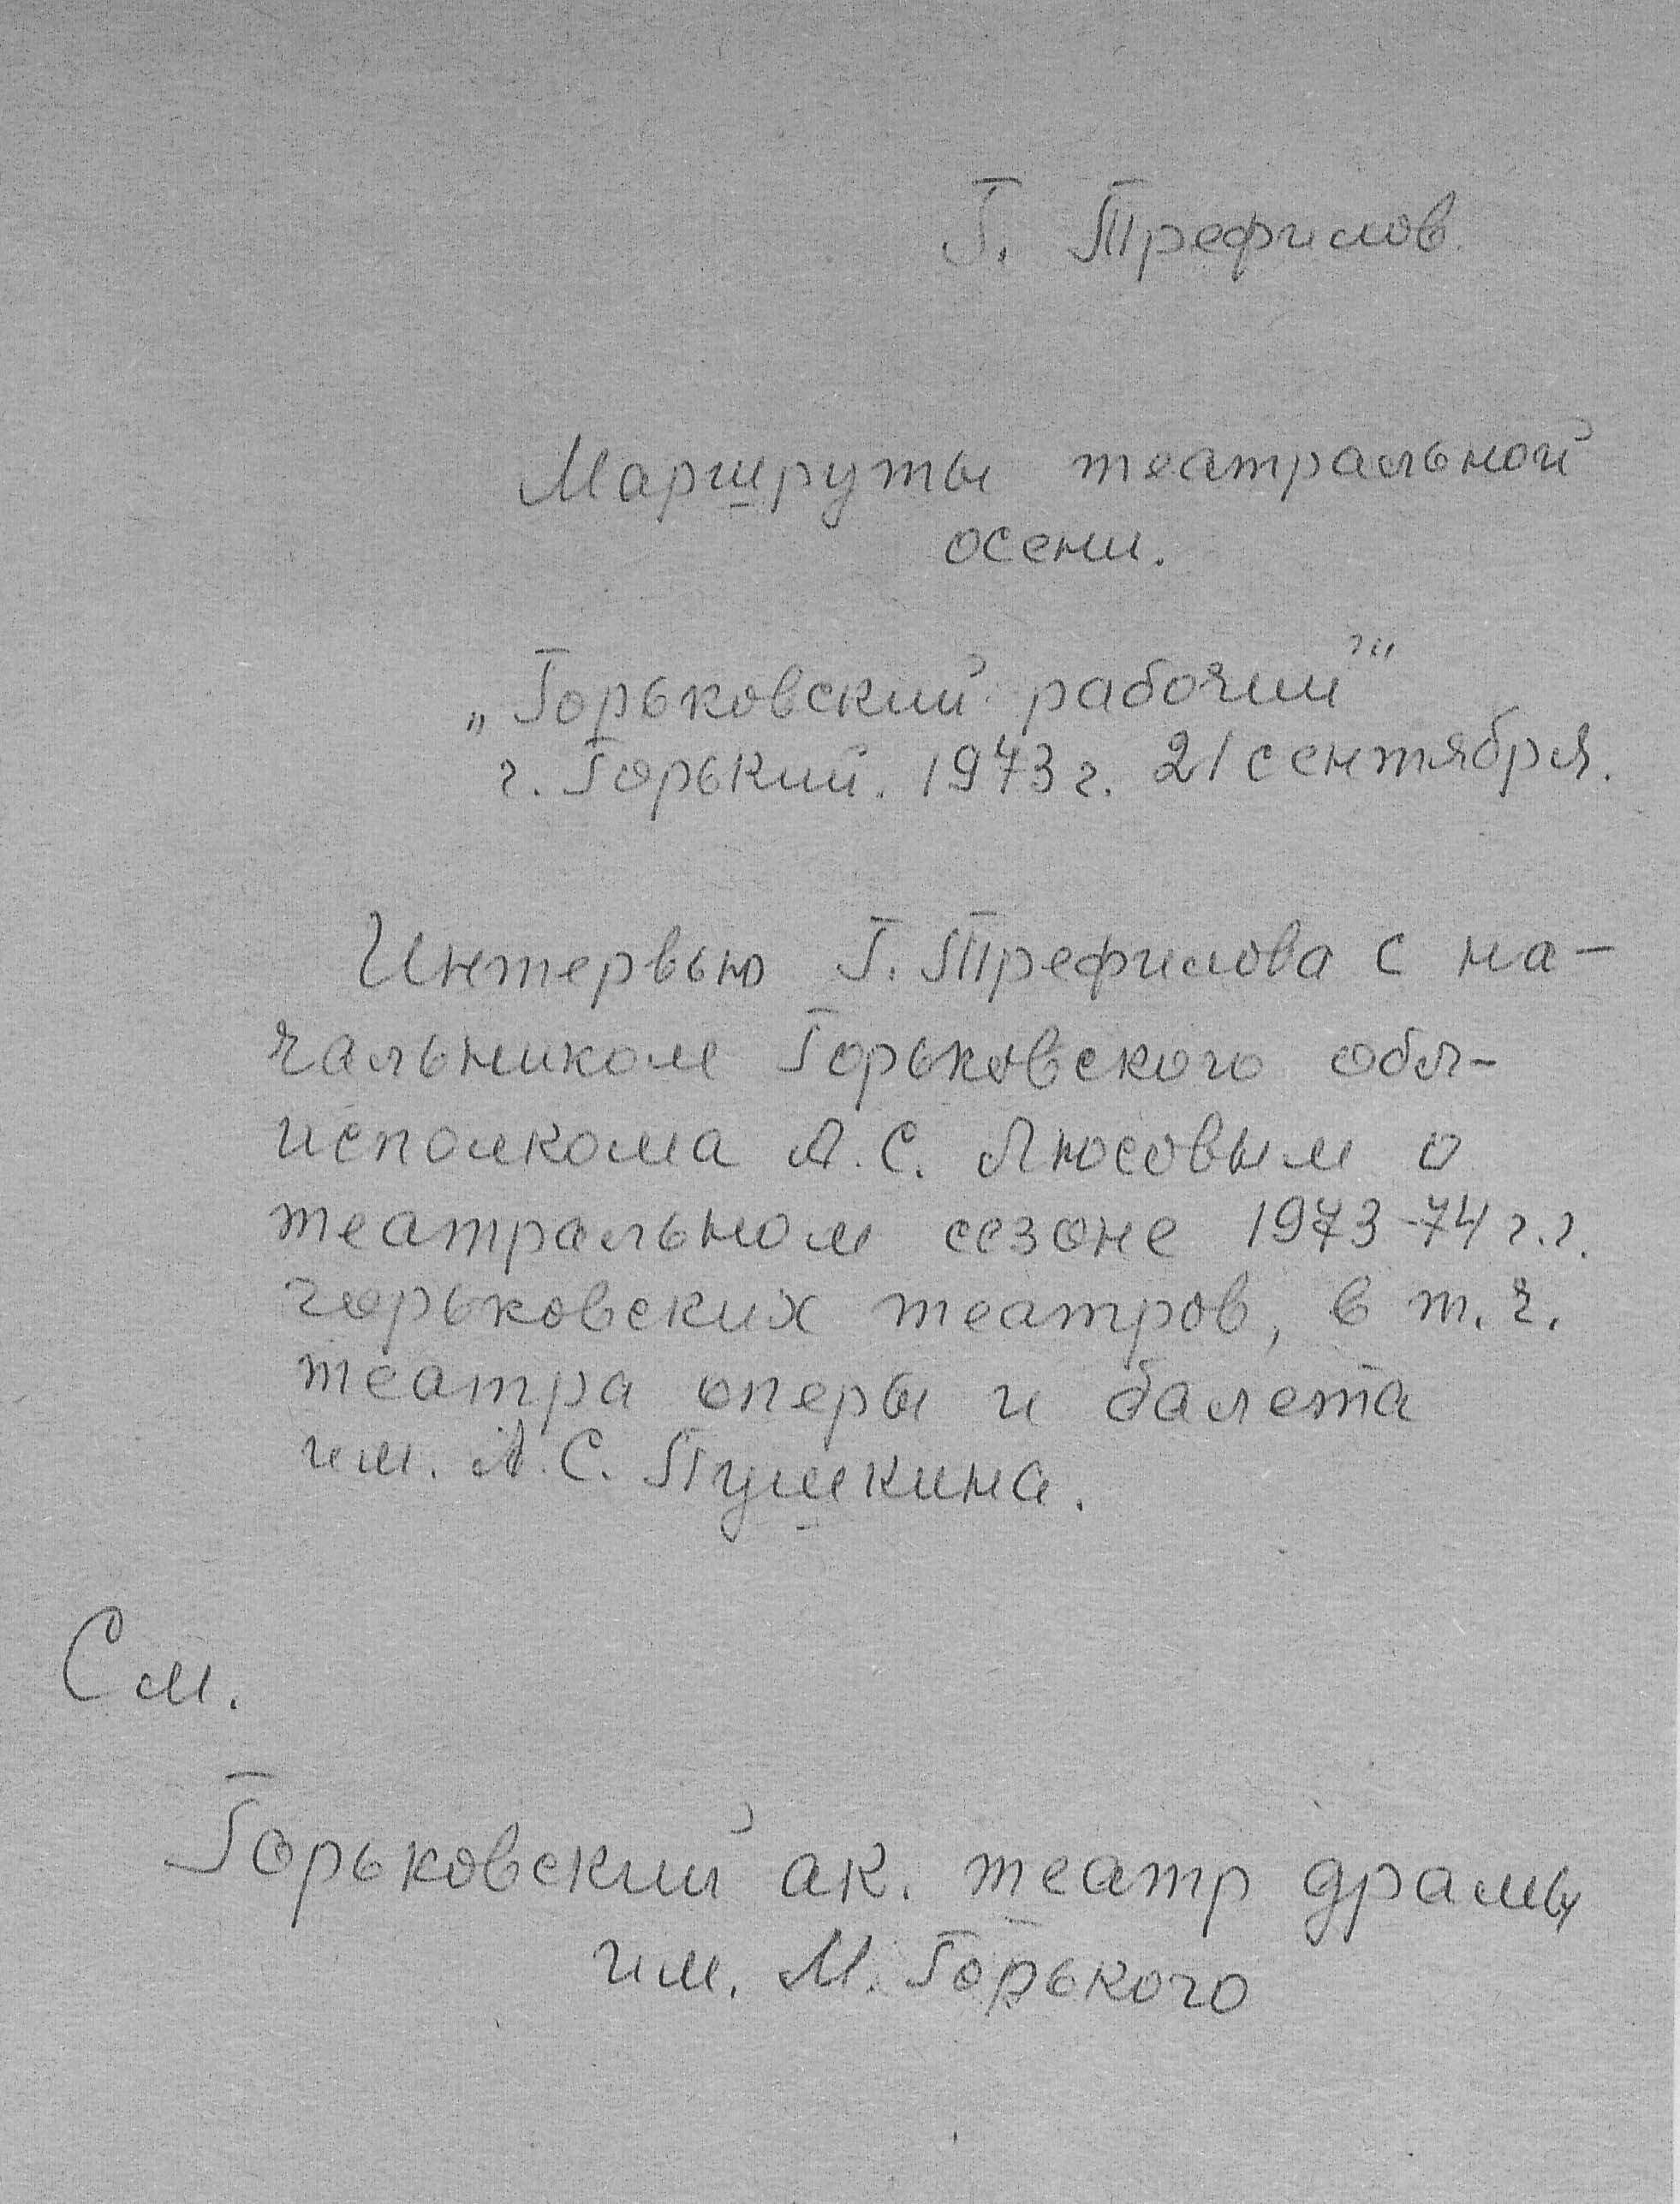 Г. Трефилов
Маршруты театральной
осени.
„Горьковский рабочий“
г. Горький. 1973 г. 21 сентября.
Интервью Г. Трефилова с на-
чальником Горьковского обл-
исполкома А.С. Люсовым о
театральном сезоне 1973-74 г.г.
горьковских театров, в т.ч.
театра оперы и балета
им. А.С. Пушкина.
См.
Горьковский ак. театр драмы
им. М. Горького